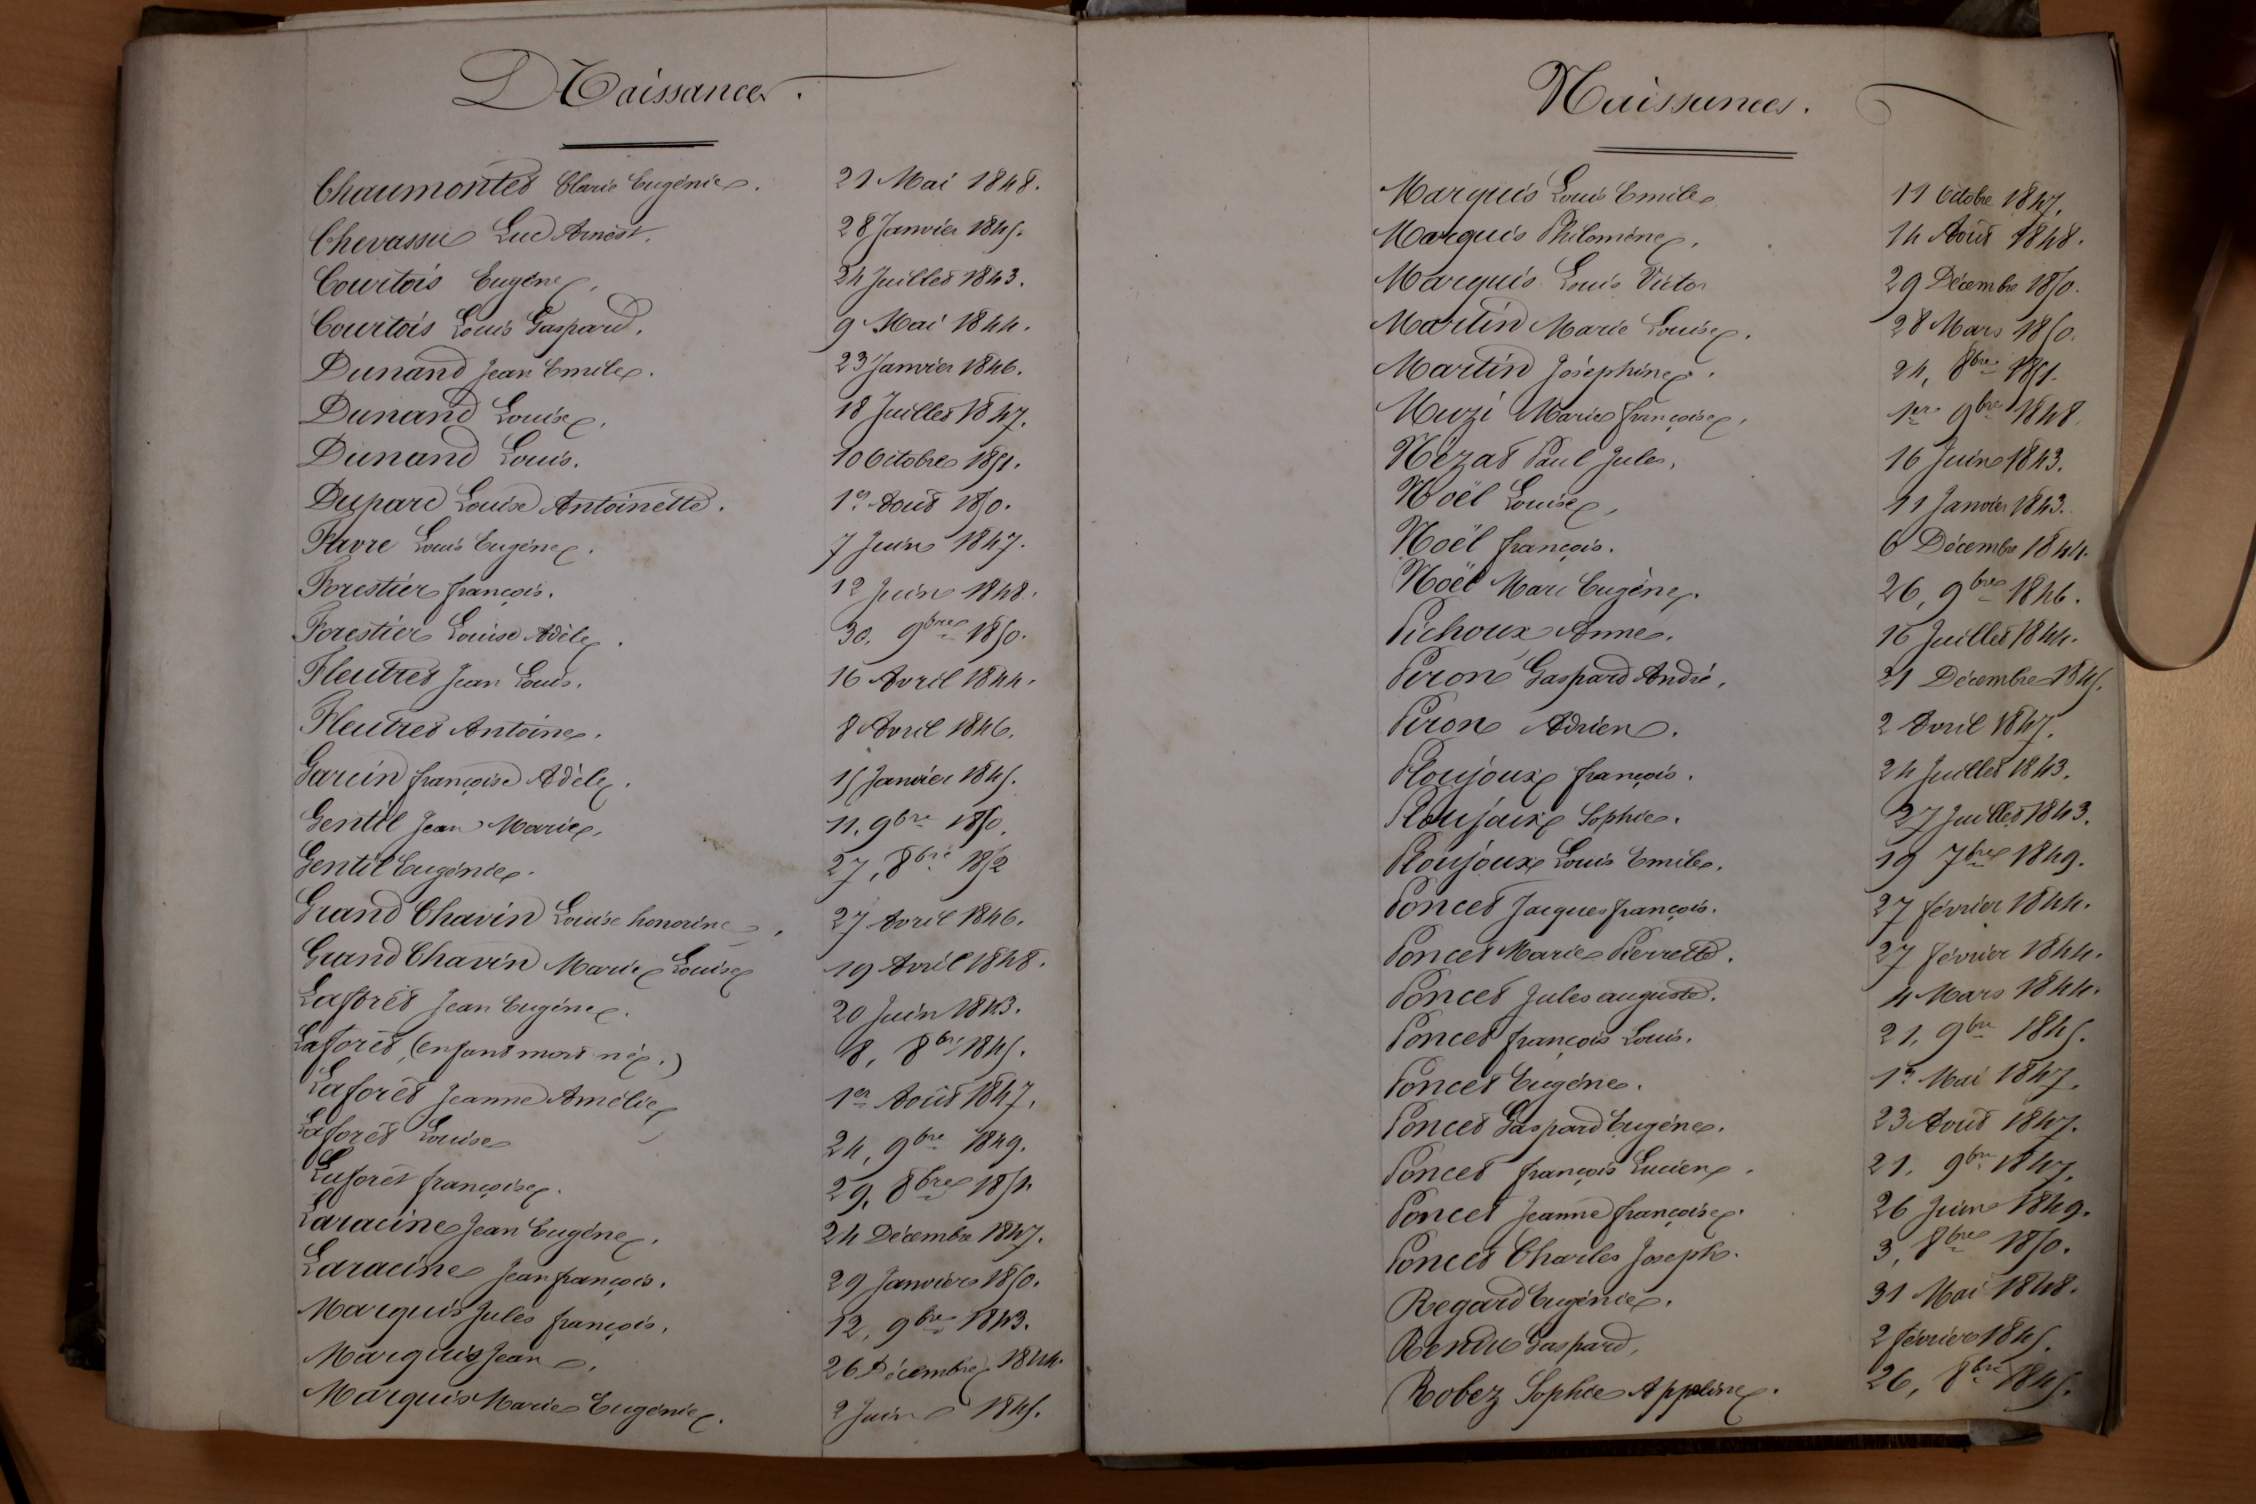 Naissances.
Chaumontet Clarie Eugénie. 21 Mai 1848.
Chevassu Luc Arnest. 28 Janvier 1845.
Courtois Eugène, 24 Juillet 1843.
Courtois Louis Gaspard. 9 Mai 1844.
Dunand Jean Emile. 23 Janvier 1846.
Dunand Louise, 18 Juillet 1847.
Dunand Louis. 10 Octobre 1851.
Duparc Louise Antoinette. 1er Août 1850.
Favre Louis Eugène. 7 Juin 1847.
Forestier françois. 12 Juin 1848.
Forestier Louise Adèle. 30. 9bre 1850.
Fleutret Jean Louis. 16 Avril 1844.
Fleutret Antoine. 8 Avril 1846.
Garcin françoise Adèle. 15 Janvier 1845.
Gentil Jean Marie, 11. 9bre 1850.
Gentil Eugénie. 27, 8bre 1852
Grand Chavin Louise honorine, 27 Avril 1846.
Grand Chavin Marie Louise 19 Avril 1848.
Laforêt Jean Eugène. 20 Juin 1843.
Laforêt, (enfant mort né.) 8, 8bre 1845.
Laforêt Jeanne Amélie 1er Août 1847.
Laforêt Louise 24, 9bre 1849.
Laforêt françoise. 29, 8bre 1851.
Laracine Jean Eugène. 24 Décembre 1847.
Laracine Jean françois. 29 Janvier 1850.
Marquis Jules françois. 12, 9bre 1843.
Marquis Jean, 26 Décembre 1844.
Marquis Marie Eugénie. 2 Juin 1845.
Naissances.
Marquis Louis Emile 11 Octobre 1847.
Marquis Philomène. 14 Août 1848.
Marquis Louis Victor 29 Décembre 1850.
Martin Marie Louise. 28 Mars 1850.
Martin Joséphine. 24, 8bre 1851.
Muzi Marie françoise. 1er 9bre 1848
Nézat Paul Jules, 16 Juin 1843.
Noël Louise, 11 Janvier 1843.
Noël françois. 6 Décembre 1844.
Noël Marc Eugène. 26, 9bre 1846.
Pichoux Anne. 16 Juillet 1844.
Piron Gaspard André, 21 Décembre 1845.
Piron Adrien. 2 Avril 1847.
Ploujoux françois. 24 Juillet 1843.
Ploujoux Sophie. 27 Juillet 1843.
Ploujoux Louis Emile. 19 7bre 1849.
Poncet Jacques françois. 27 février 1844.
Poncet Marie Pierrette. 27 février 1844.
Poncet Jules auguste. 4 Mars 1844.
Poncet françois Louis. 21, 9bre 1845.
Poncet Eugénie. 1er Mai 1847.
Poncet Gaspard Eugène. 23 Août 1847.
Poncet françois Lucien. 21. 9bre 1847.
Poncet Jeanne françoise. 26 Juin 1849.
Poncet Charles Joseph. 3, 8bre 1850.
Regard Eugénie. 31 Mai 1848.
Rendu Gaspard, 2 février 1845.
Robez Sophie Appoline. 26, 8bre 1845.